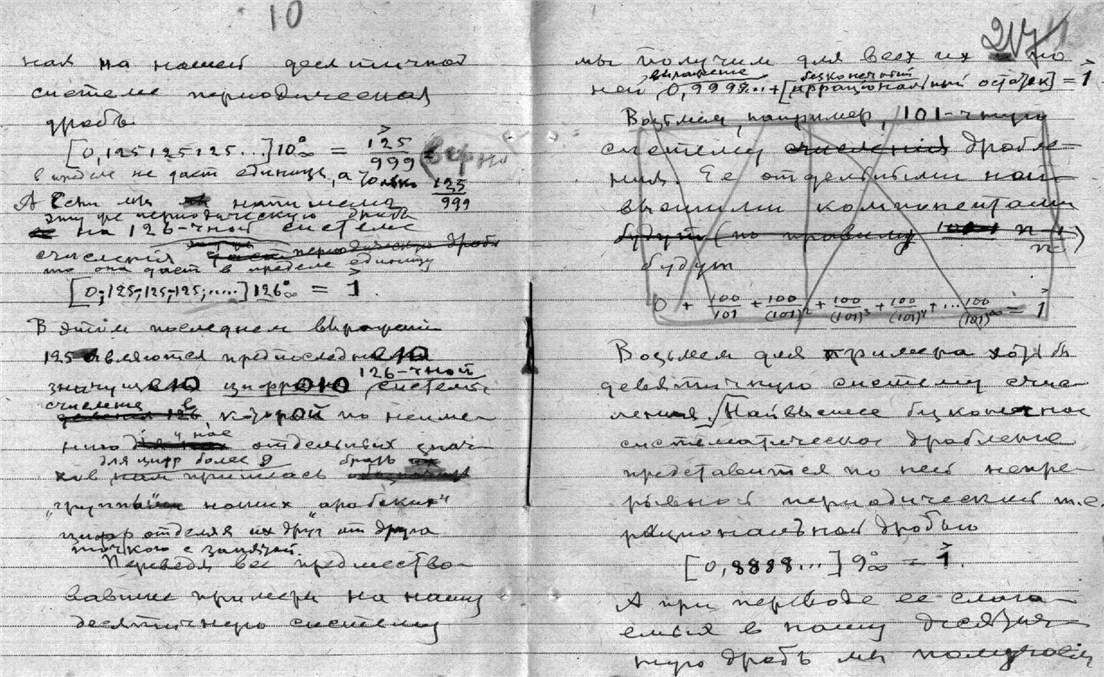 10
ная на нашей десятичной
системе периодическая
дробь
[0,125125125...]10°∞ = 125/999 верно
в пределе не даст единицы, а только 125/999
А если мы напишем
эту же периодическую дробь
на 126-чной системе
счисления
то она даст в пределе единицу
[0;125;125;125;.....]126°∞ = 1.
В этом последнем выражении
125 является предпоследнею
значущею цифрою 126-чной системы
счисления в
которой по неиме-
нию отдельных знач-
для цифр более 9 брать
ков нам пришлось
„группы наших „арабских"
цифр отделяя их друг от друга
точкою с запятой.
Переведя все предшество-
вавшие примеры на нашу
десятичную систему
217
мы получим для всех их одно
выражение бесконечный
ной 0,9998...+[иррациональный остаток] = 1
Возьмем, например, 101-чную
систему счисления дробле-
ния. Ее отдельными наи-
высшими компонентами
будут (по правилу n-1/n)
будут
0 + 100/101 + 100/(101)² + 100/(101)³ + 100/(101)⁴ + ... 100/(101)∞ = 1
Возьмем для примера хотя бы
девятичную систему счис-
ления. Наивысшее бесконечное
систематическое дробление
представится по ней непре-
рывной периодический т.е.
рациональной дробью
[0,8888...] 9°∞ = 1.
А при переводе ее слага-
емых в нашу десятич-
ную дробь мы получаем